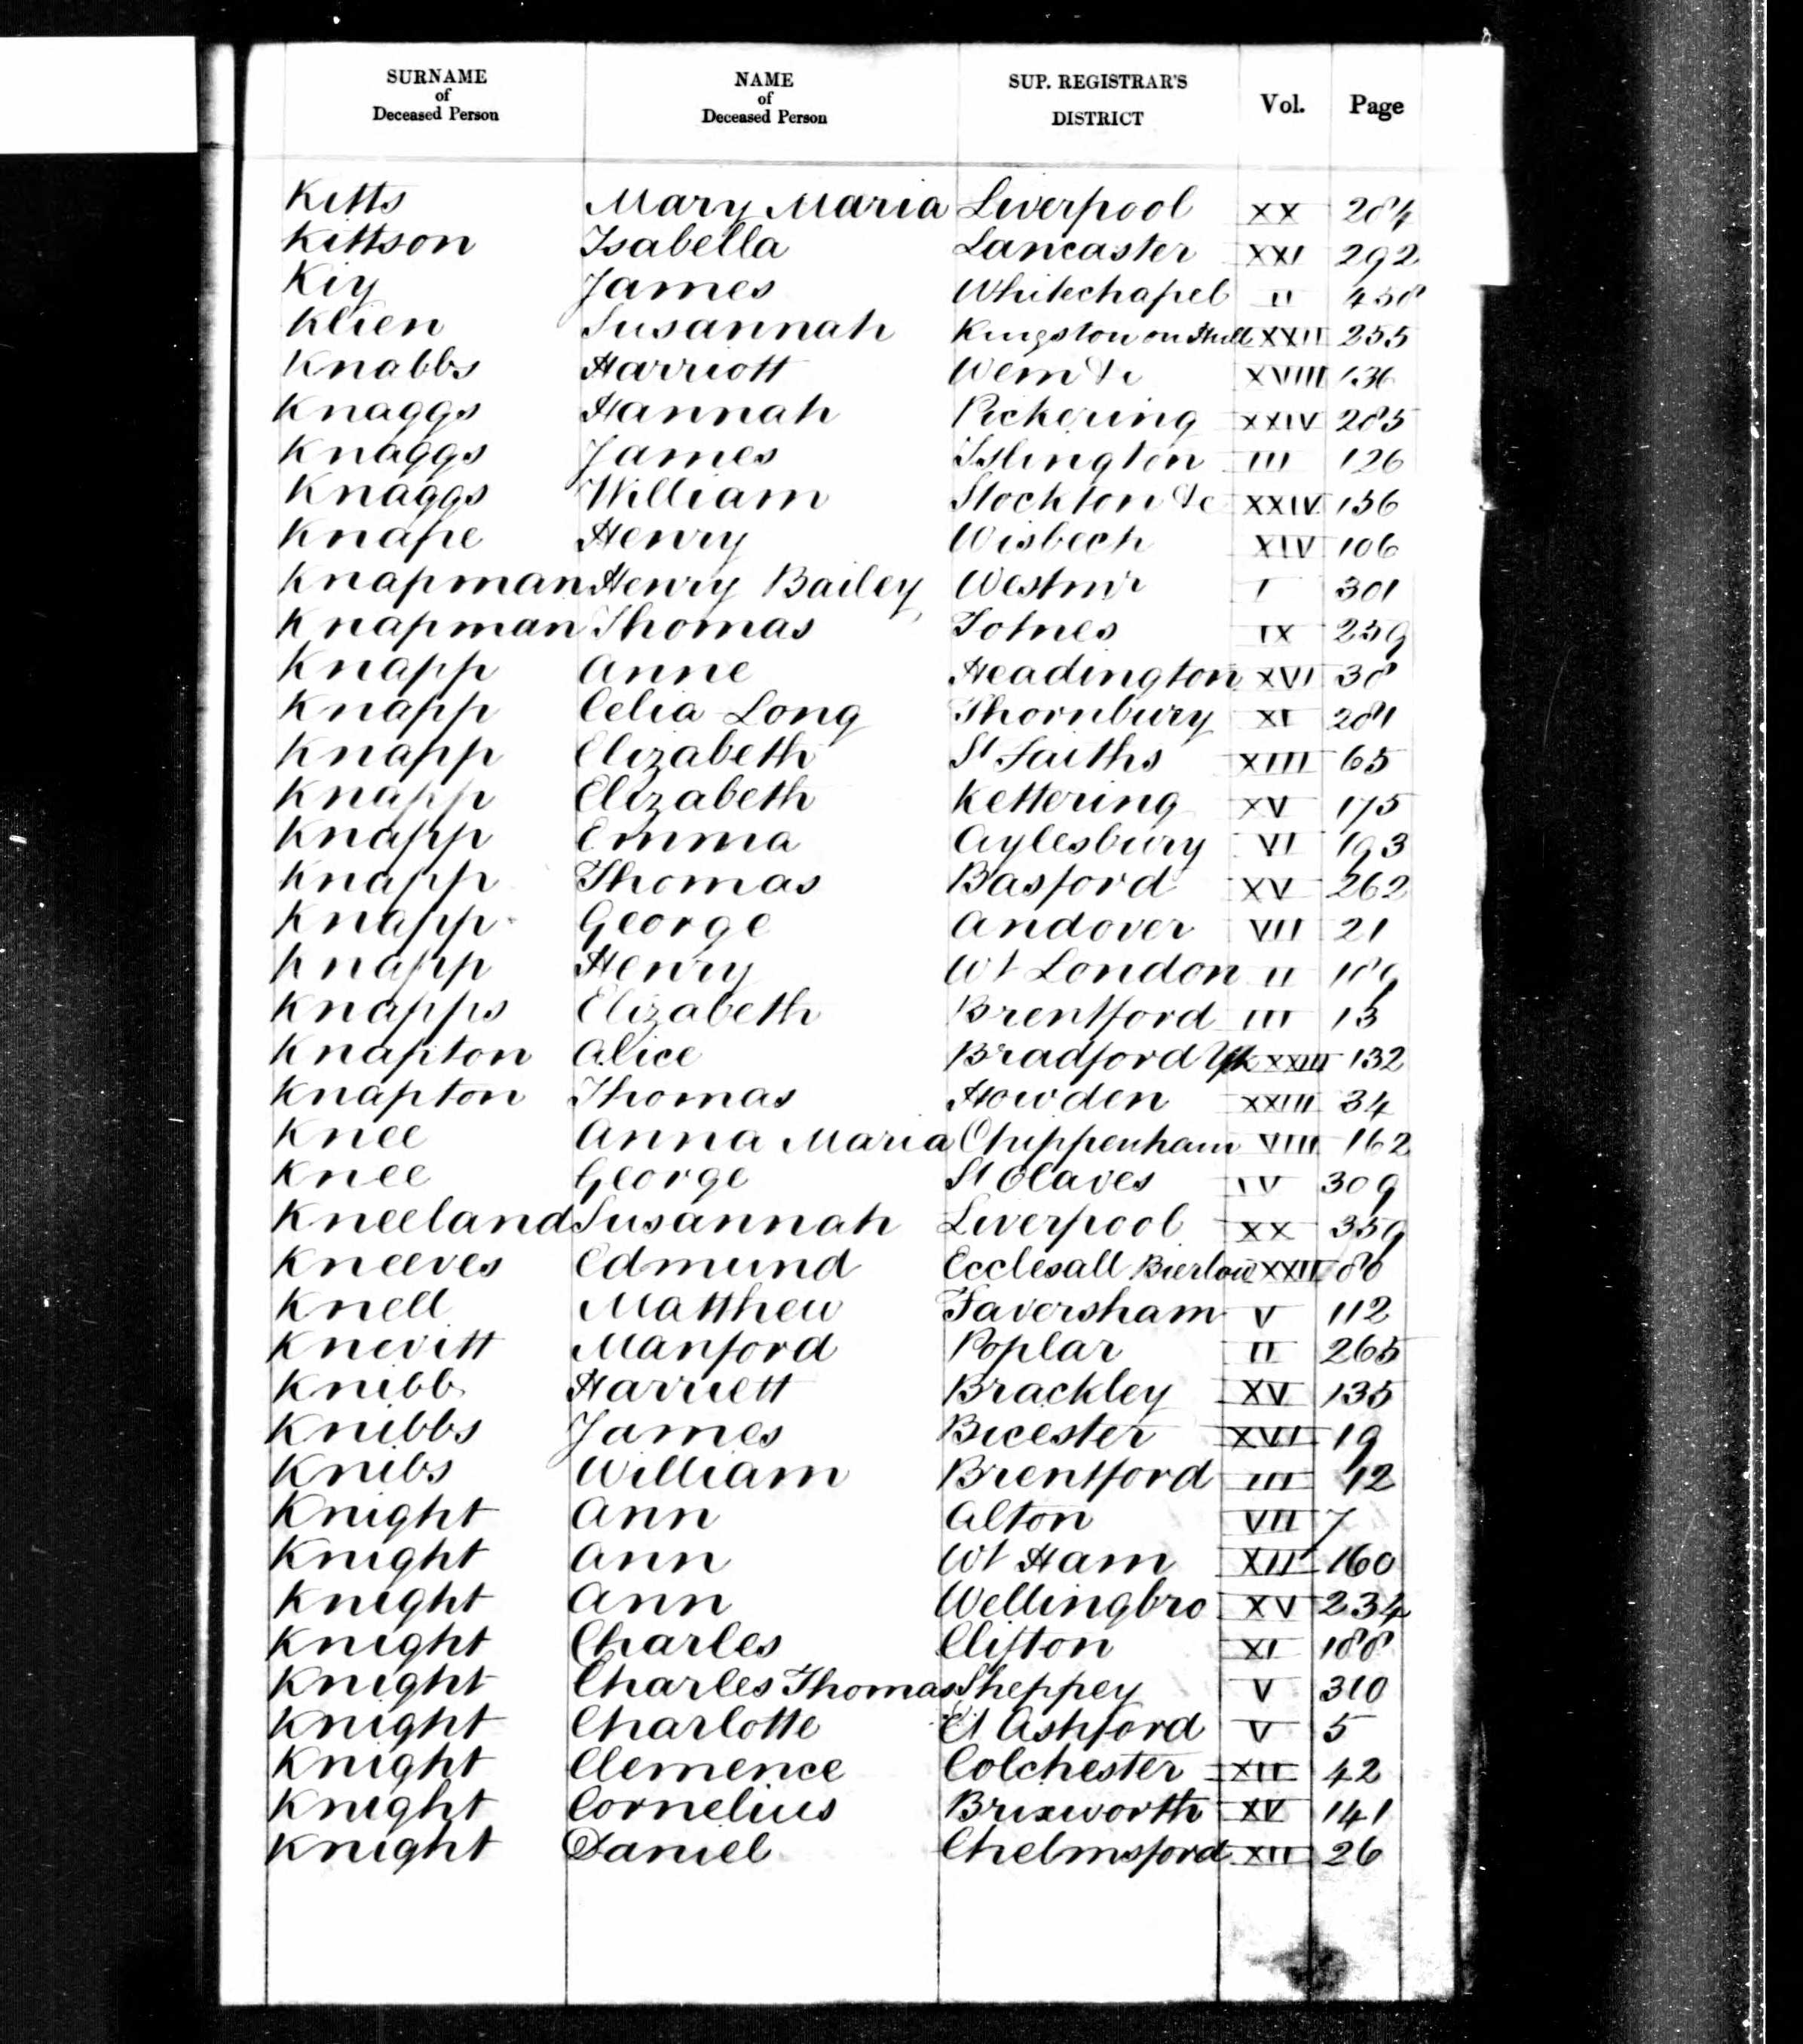 SURNAME of Deceased Person NAME of Deceased Person SUP. REGISTRAR'S DISTRICT Vol. Page
Kitts Mary Maria Liverpool XX 284
Kittson Isabella Lancaster XXI 292
Kiy James Whitechapel II 458
Klien Susannah Kingston on Hull XXII 255
Knabbs Harriott Wem &c XVIII 136
Knaggs Hannah Pickering XXIV 285
Knaggs James Islington III 126
Knaggs William Stockton &c XXIV 156
Knape Henry Wisbech XIV 106
Knapman Henry Bailey Westmr I 301
Knapman Thomas Totnes IX 259
Knapp Anne Headington XVI 38
Knapp Celia Long Thornbury XI 281
Knapp Elizabeth St Faiths XIII 65
Knapp Elizabeth Kettering XV 175
Knapp Emma Aylesbury VI 193
Knapp Thomas Basford XV 262
Knapp George Andover VII 21
Knapp Henry Wt London II 189
Knapps Elizabeth Brentford III 13
Knapton Alice Bradford Yk XXIII 132
Knapton Thomas Howden XXIII 34
Knee Anna Maria Chippenham VIII 162
Knee George St Olaves IV 309
Kneeland Susannah Liverpool XX 359
Kneeves Edmund Ecclesall Bierlow XXII 80
Knell Matthew Faversham V 112
Knevitt Manford Poplar II 265
Knibb Harriett Brackley XV 135
Knibbs James Bicester XVI 19
Knibs William Brentford III 12
Knight Ann Alton VII 7
Knight Ann Wt Ham XII 160
Knight Ann Wellingbro XV 234
Knight Charles Clifton XI 188
Knight Charles Thomas Sheppey V 310
Knight Charlotte Et Ashford V 5
Knight Clemence Colchester XII 42
Knight Cornelius Brixworth XV 141
Knight Daniel Chelmsford XII 26